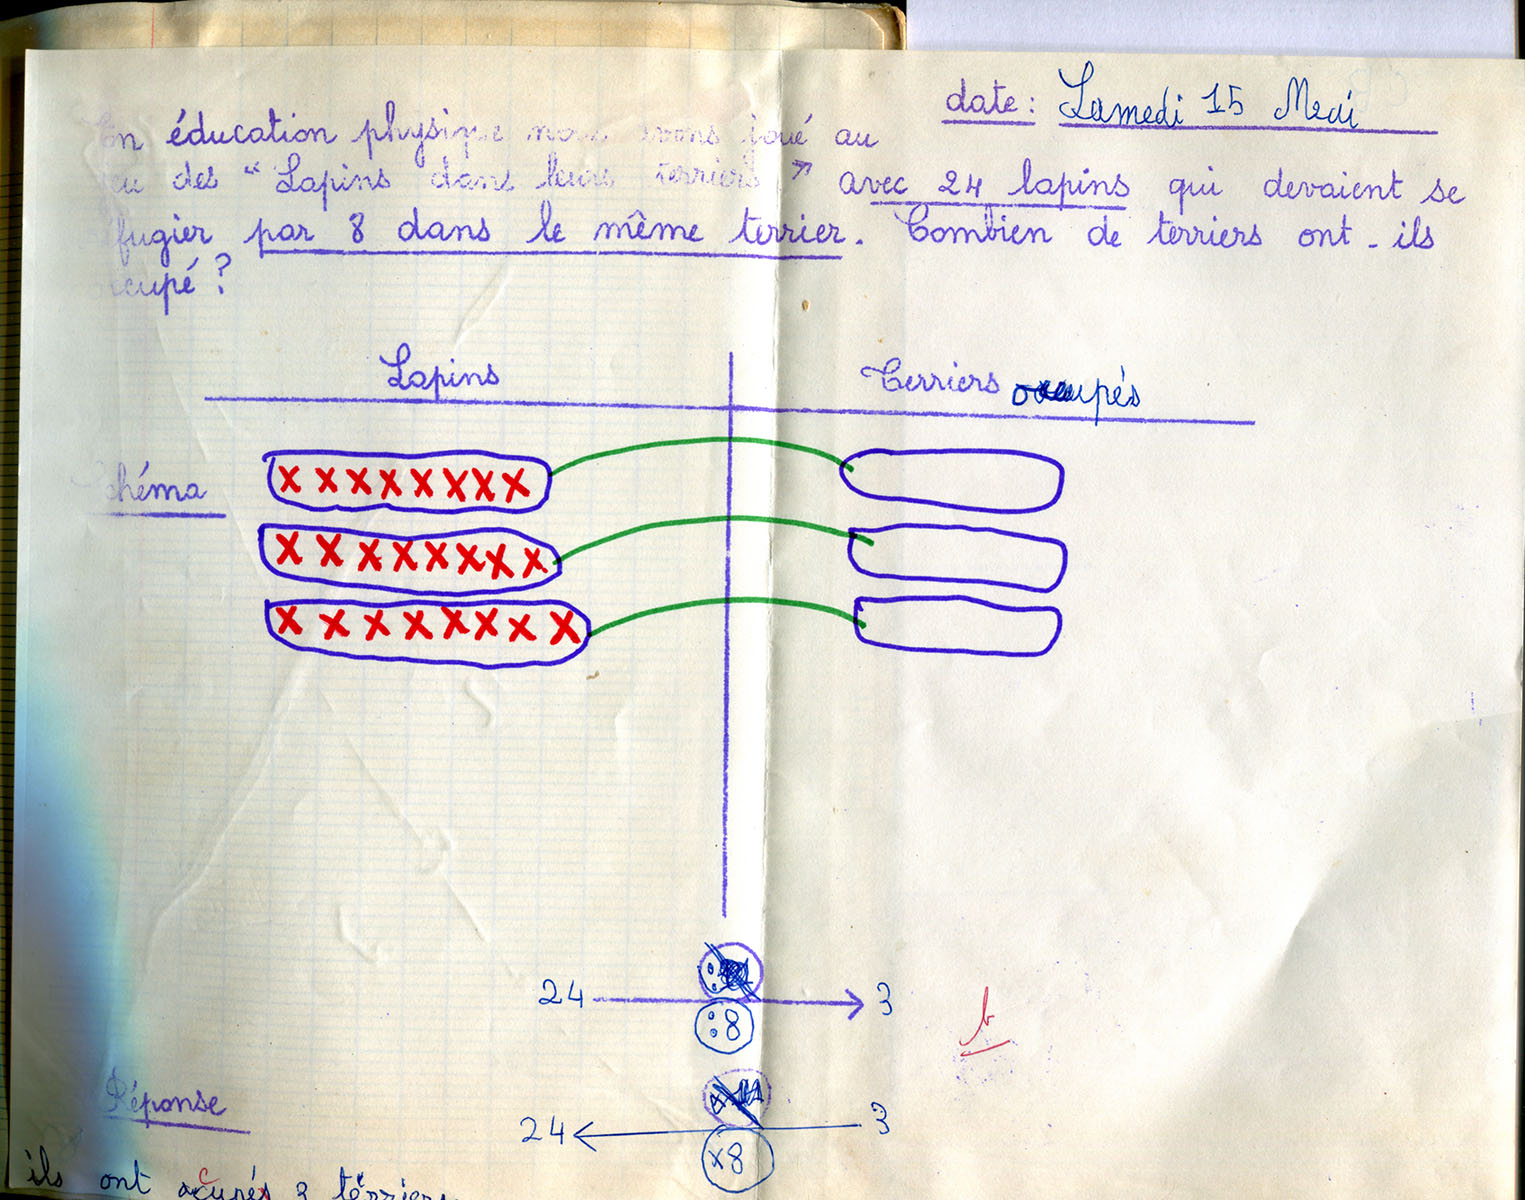 date: Samedi 15 Mai
En éducation physique nous avons joué au
jeu des "Lapins dans leurs terriers" avec 24 lapins qui devaient se
fugier par 8 dans le même terrier. Combien de terriers ont-ils
cupé?
Lapins Terriers occupés
Schéma
X X X X X X X X
X X X X X X X X
X X X X X X X X
24 3
:8
b
Réponse
24 3
x8
ils ont ocupés 3 terriers